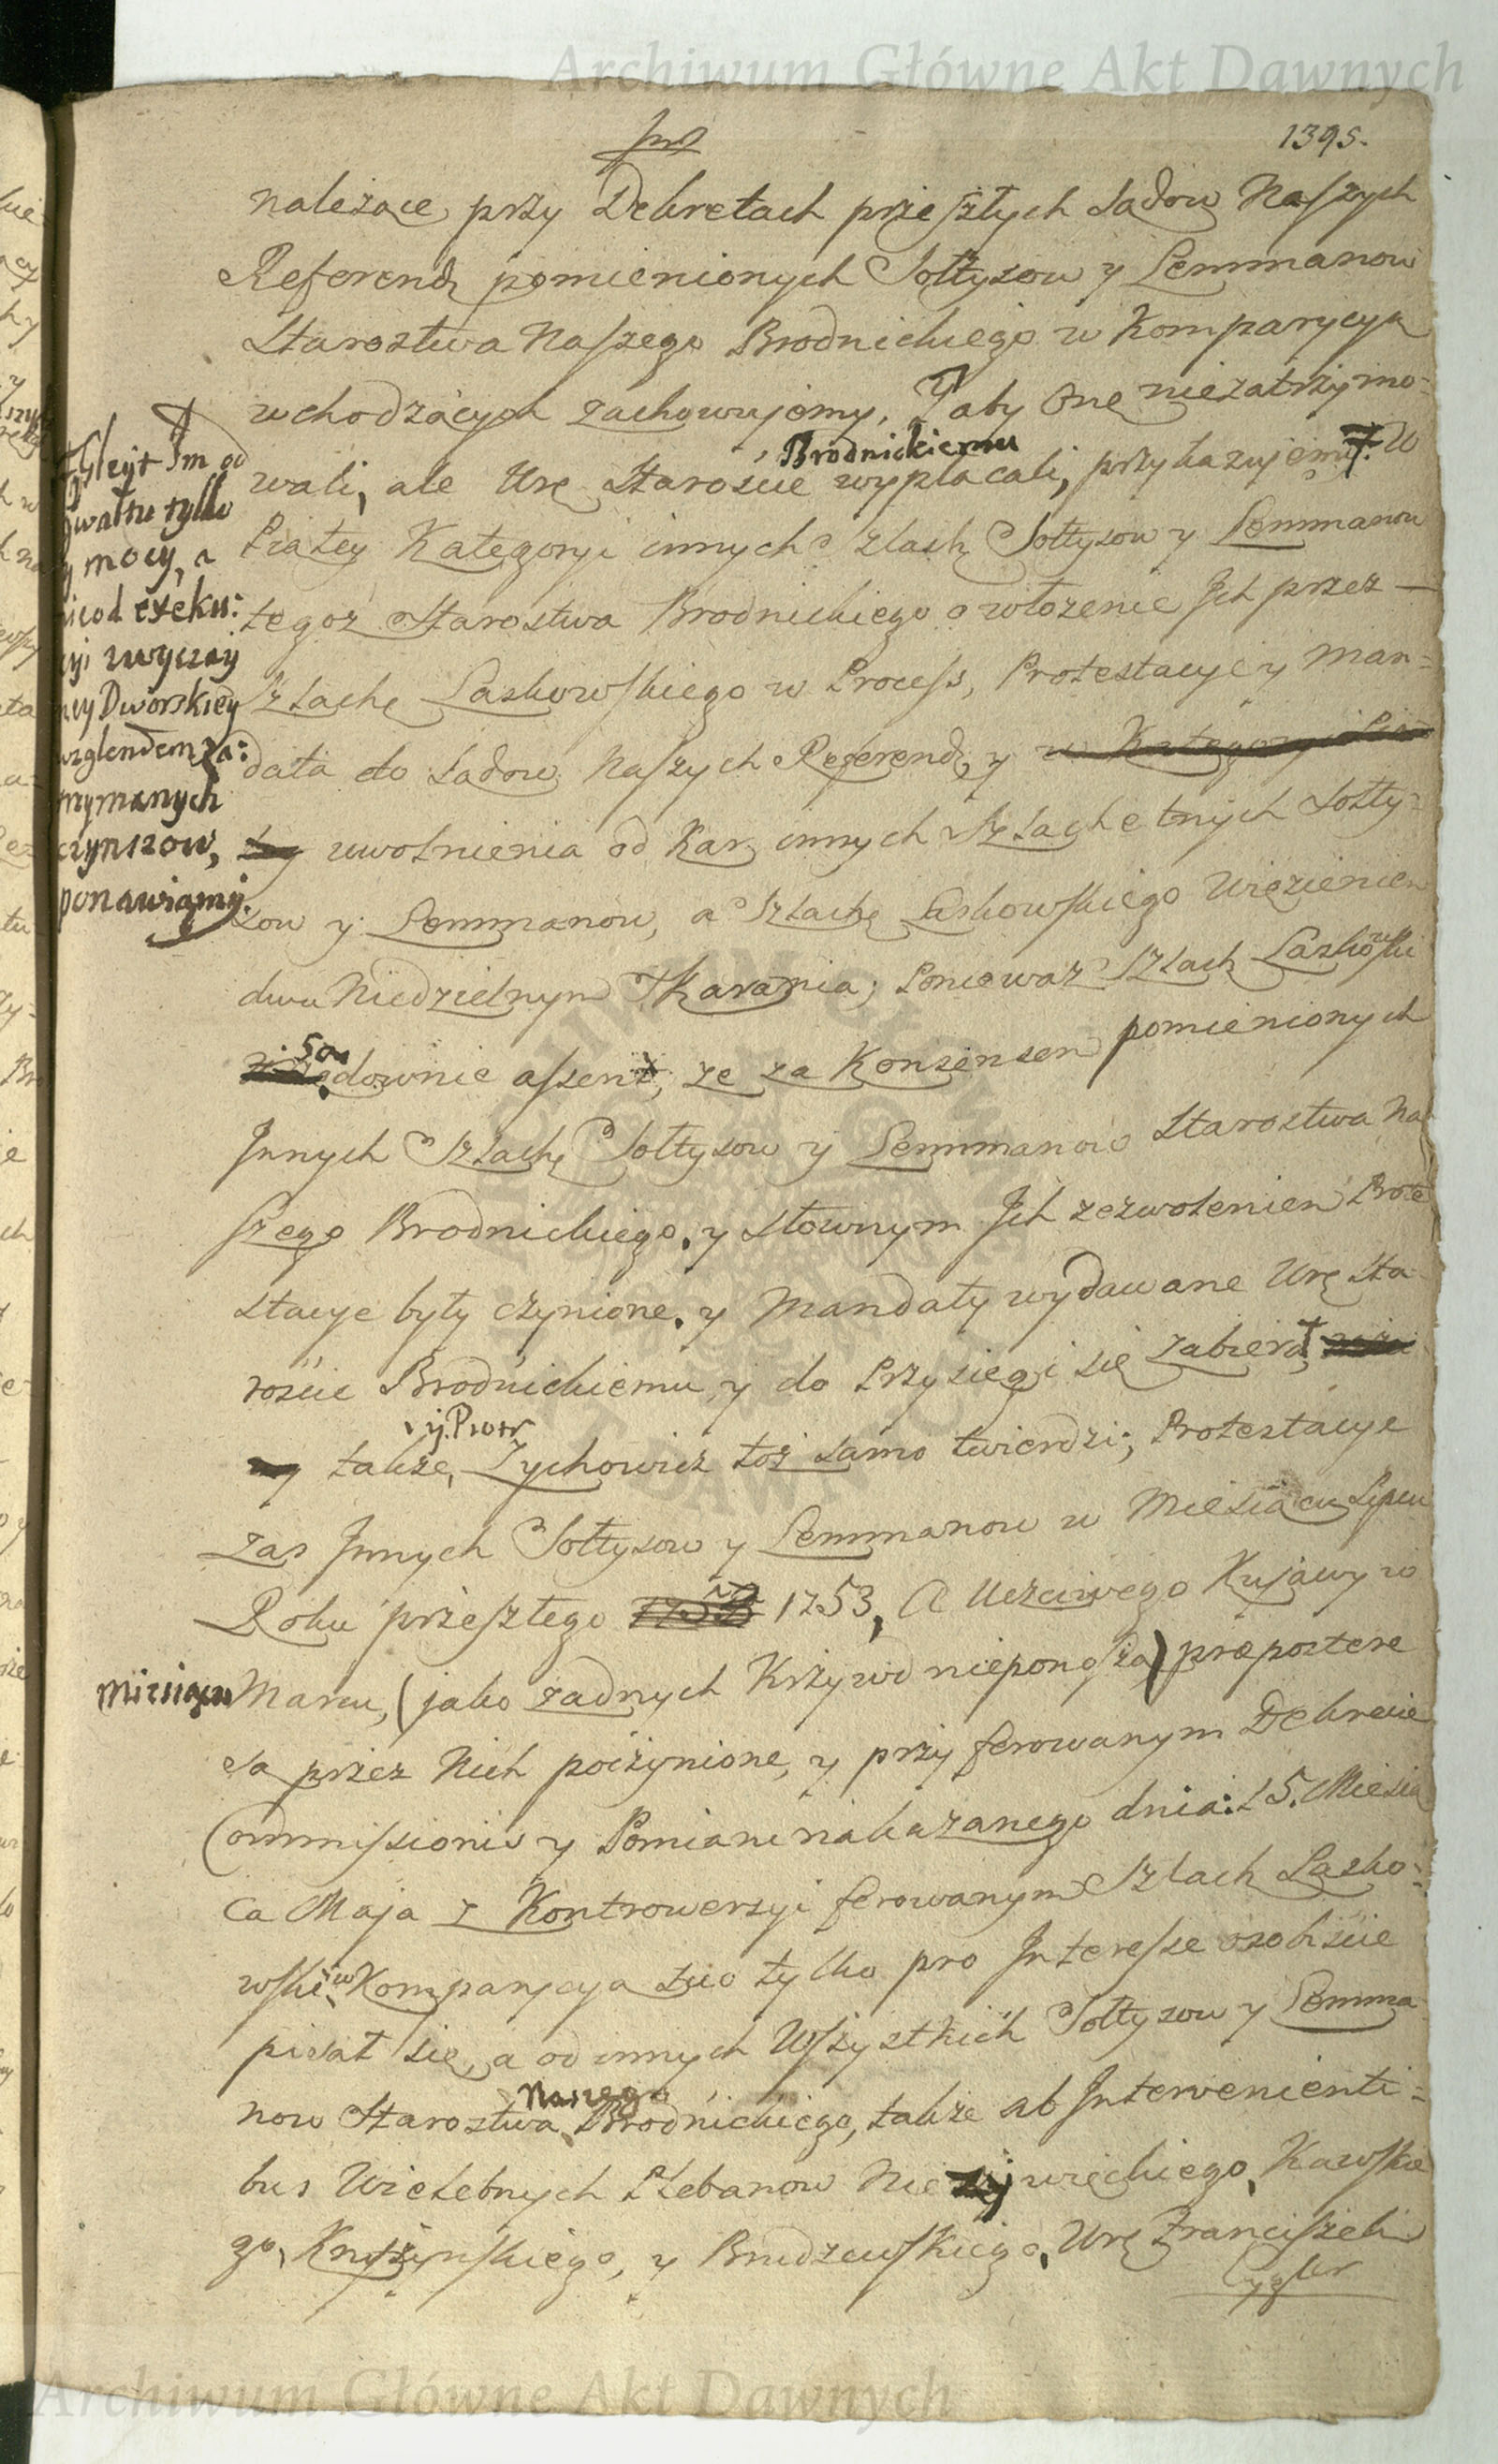 Archiwum Główne Akt Dawnych
1395.
należące przy Dekretach przeszłych Sadow Naszych
Referend pomienionych Sołtysow y Lemmanow
Starostwa Naszego Brodnickiego w Komparycyą
wchodzących zachowujemy, aby One niezatrzymo-
wali, ale Urę Staroście Brodnickiemu wypłacali, przykazujemy. W
Piątey Kategoryi innych Szlach Sołtysow y Lemmanow
tegoz Starostwa Brodnickiego o włozenie Ich przez
Szlachę Laskowskiego w Process, Protestacye y Man=
data do Sadow Naszych Referend, y w Kategoryi Pią
tey uwolnienia od Kar innych Szlachetnych Sołty=
sow y Lemmanow, a Szlachę Laskowskiego Więzieniem
dwuNiedzielnym Karania; Poniewaz Szlach Laskowski
sądownie assent, ze za Konsensem pomienionych
Innych Szlachę Sołtysow y Lemmanow Starostwa Na
szego Brodnickiego, y słownym Ich zezwoleniem Prote
stacye były czynione, y Mandaty wydawane Urę Sta
roście Brodnickiemu y do Przysięgi się zabierał,
także, y Piotr Zychowicz toż samo twierdzi; Protestacye
zas Innych Sołtysow y Lemmanow w Miesiącu Lipcu
Roku przeszłego 1753, A Uczciwego Kujawy w
miesiącu Marcu, (jako zadnych Krzywd nieponoszą) præpostere
są przez Nich poczynione, y przy ferowanym Dekrecie
Commissionis y Pomiaru nakazanego dnia: 15. Miesią
ca Maja z Kontrowersyi ferowanym Szlach Lasko=
wski w Komparycyą suo tylko pro Interesse osobiście
pisał się, a od innych Wszystkich Sołtysow y Lemma
now Starostwa Naszego Brodnickiego, także ab Intervenienti=
bus Wielebnych Plebanow Nieżywięckiego, Kawskie
go, Kruszyńskiego, y Brudzewskiego, Urę Franciszek
Cygler
Gleyt Im od
gwałtu tylko
y mocy, a
nie od exeku:
cyi zwyczay
ney Dworskiey
względem za:
trzymanych
czynszow,
ponawiamy.
Archiwum Główne Akt Dawnych